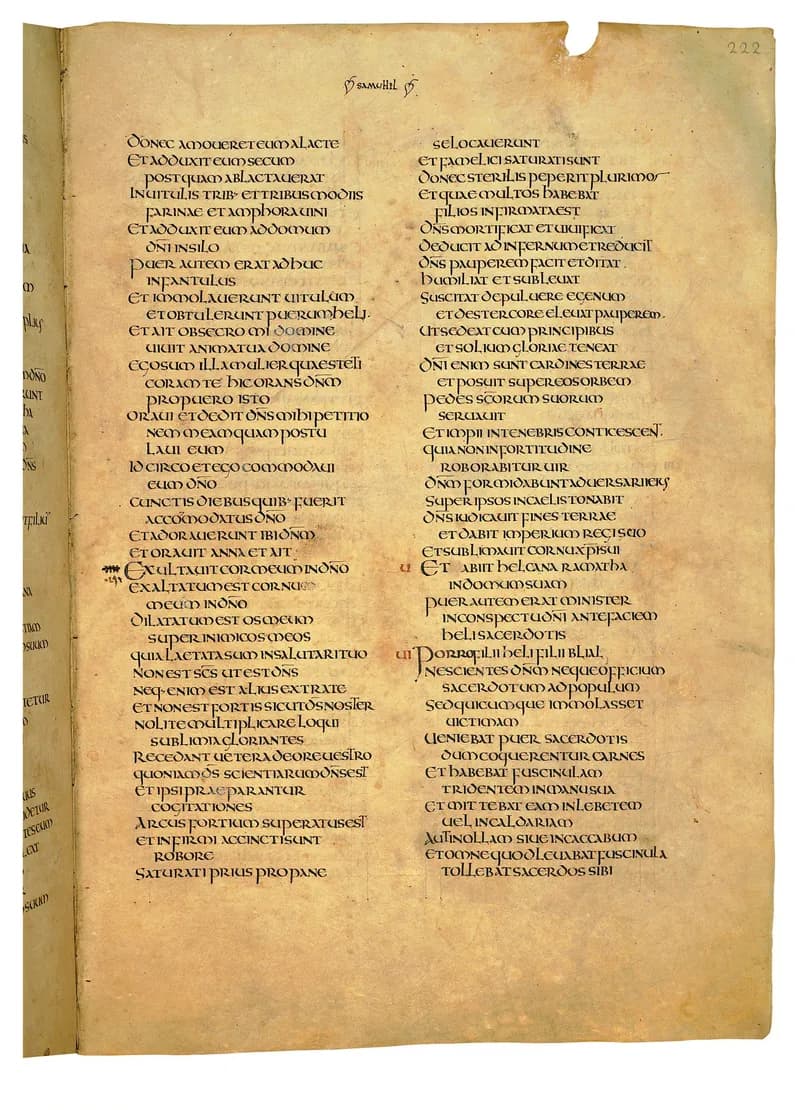 222
SAMUHIL
DONEC AMOUERET EUM A LACTE
ET ADDUXIT EUM SECUM
POSTQUAM ABLACTAUERAT
IN UITULIS TRIB· ET TRIBUS MODIIS
FARINAE ET AMPHORA UINI
ET ADDUXIT EUM AD DOMUM
DN̄I IN SILO
PUER AUTEM ERAT ADHUC
INFANTULUS
ET IMMOLAUERUNT UITULUM
ET OBTULERUNT PUERUM HELI·
ET AIT OBSECRO MI DOMINE
UIUIT ANIMA TUA DOMINE
EGO SUM ILLA MULIER QUAE STETI
CORAM TE HIC ORANS DN̄M
PRO PUERO ISTO
ORAUI ET DEDIT DN̄S MIHI PETITIO
NEM MEAM QUAM POSTU
LAUI EUM
IDCIRCO ET EGO COMMODAUI
EUM DN̄O
CUNCTIS DIEBUS QUIB· FUERIT
ACCOMODATUS DN̄O
ET ADORAUERUNT IBI DN̄M
ET ORAUIT ANNA ET AIT
EXULTAUIT COR MEUM IN DN̄O
EXALTATUM EST CORNU
MEUM IN DN̄O
DILATATUM EST OS MEUM
SUPER INIMICOS MEOS
QUIA LAETATA SUM IN SALUTARI TUO
NON EST SC̄S UT EST DN̄S
NEQ· ENIM EST ALIUS EXTRA TE
ET NON EST FORTIS SICUT DS̄ NOSTER
NOLITE MULTIPLICARE LOQUI
SUBLIMIA GLORIANTES
RECEDANT UETERA DE ORE UESTRO
QUONIAM DS̄ SCIENTIARUM DN̄S EST
ET IPSI PRAEPARANTUR
COGITATIONES
ARCUS FORTIUM SUPERATUS EST
ET INFIRMI ACCINCTI SUNT
ROBORE
SATURATI PRIUS PRO PANE
SE LOCAUERUNT
ET FAMELICI SATURATI SUNT
DONEC STERILIS PEPERIT PLURIMOS
ET QUAE MULTOS HABEBAT
FILIOS INFIRMATA EST
DN̄S MORTIFICAT ET UIUIFICAT
DEDUCIT AD INFERNUM ET REDUCIT
DN̄S PAUPEREM FACIT ET DITAT
HUMILIAT ET SUBLEUAT
SUSCITAT DE PULUERE EGENUM
ET DE STERCORE ELEUAT PAUPEREM·
UT SEDEAT CUM PRINCIPIBUS
ET SOLIUM GLORIAE TENEAT
DN̄I ENIM SUNT CARDINES TERRAE
ET POSUIT SUPER EOS ORBEM
PEDES SC̄ORUM SUORUM
SERUAUIT
ET IMPII IN TENEBRIS CONTICESCENT·
QUIA NON IN FORTITUDINE
ROBORABITUR UIR
DN̄M FORMIDABUNT ADUERSARII EIUS
SUPER IPSOS IN CAELIS TONABIT
DN̄S IUDICAUIT FINES TERRAE
ET DABIT IMPERIUM REGI SUO
ET SUBLIMAUIT CORNU XPI SUI
U ET ABIIT HELCANA RAMATHA
IN DOMUM SUAM
PUER AUTEM ERAT MINISTER
IN CONSPECTU DN̄I ANTE FACIEM
HELI SACERDOTIS
UI PORRO FILII HELI FILII BLIAL
NESCIENTES DN̄M NEQUE OFFICIUM
SACERDOTUM AD POPULUM
SED QUICUMQUE IMMOLASSET
UICTIMAM
UENIEBAT PUER SACERDOTIS
DUM COQUERENTUR CARNES
ET HABEBAT FUSCINULAM
TRIDENTEM IN MANU SUA
ET MITTEBAT EAM IN LEBETEM
UEL IN CALDARIAM
AUT IN OLLAM SIUE IN CACCABUM
ET OMNE QUOD LEUABAT FUSCINULA
TOLLEBAT SACERDOS SIBI